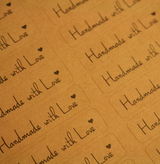 Handmade with Love
Handmade with Love
Handmade with Love
Handmade with Love
Handmade with Love
Handmade with
Handmade
Handmade